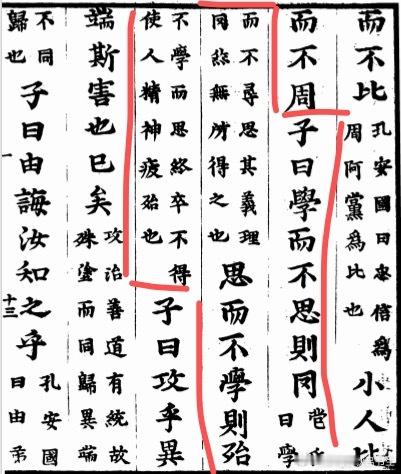 而不比孔安國曰忠信爲周阿黨爲比也小人比
而不周子曰學而不思則罔苞氏曰學
而不尋思其義理罔然無所得之也思而不學則殆
不學而思終卒不得使人精神疲殆也子曰攻乎異
端斯害也已矣攻治善道有統故殊塗而同歸異端
不同歸也子曰由誨汝知之乎孔安國曰由弟
一
十三